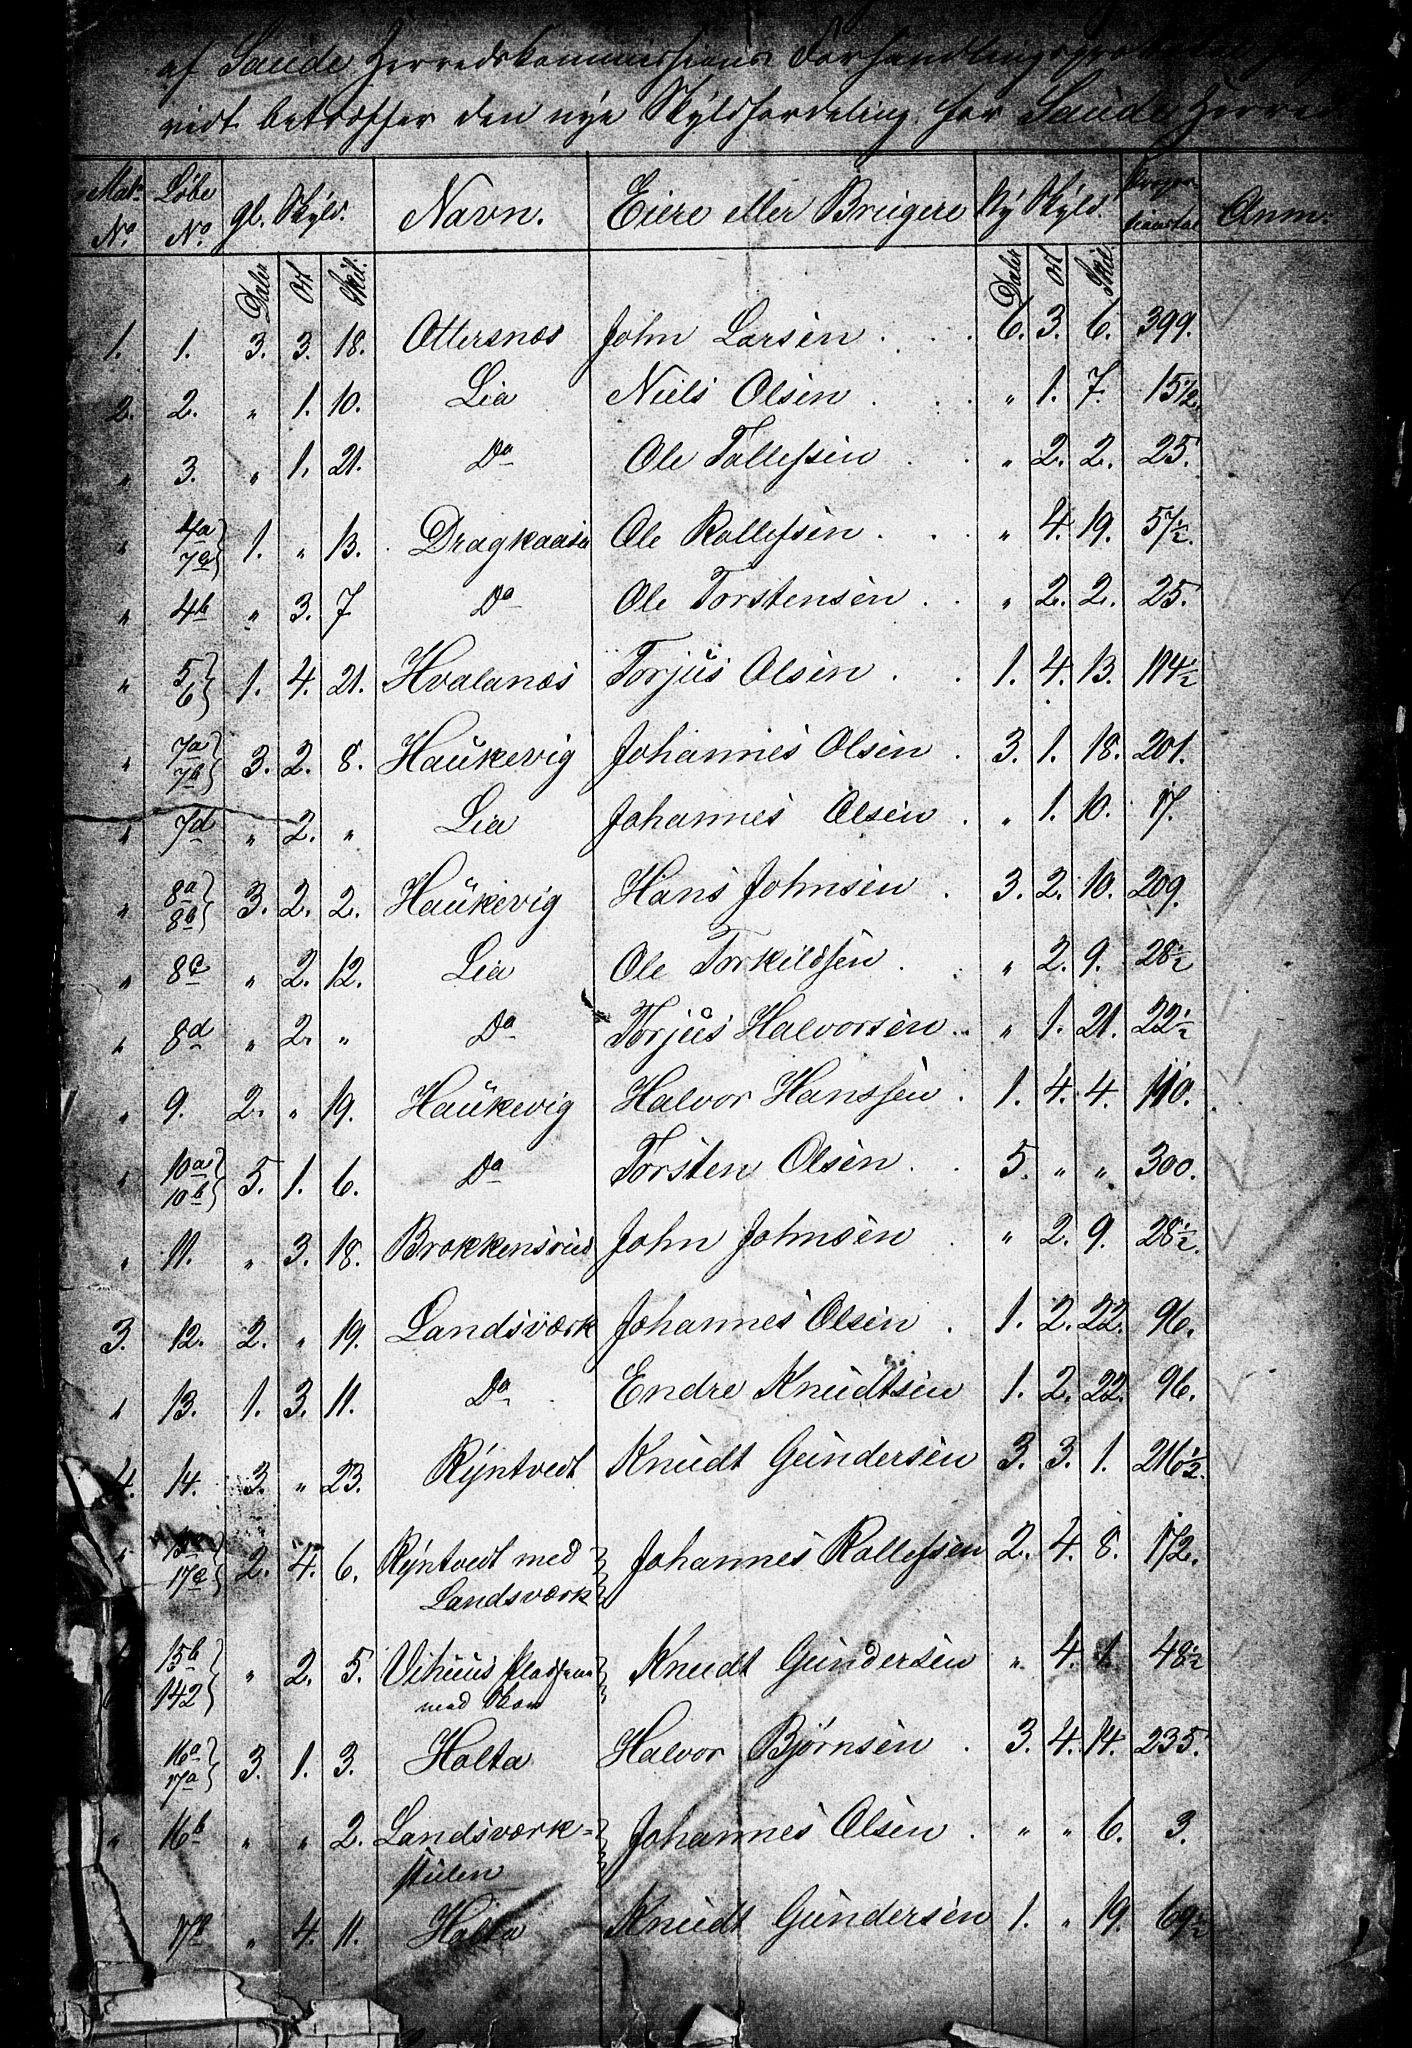 af Saude Herredskommissions Forhandlingsprotokol
vidt betræffer den nye Skyldfordeling for Saude Herred
Mat. No. Løbe No. gl. Skyld. Navn. Eiere eller Brugere Ny Skyld. Proportionstal Anm.
Daler Ort Skil. Daler Ort Skil.
1. 1. 3. 3. 18. Ottersnæs John Larsen 6. 3. 6. 399.
2. 2. " 1. 10. Lia Niels Olsen " 1. 7. 15 1/2.
" 3. " 1. 21. Do Ole Tollefsen " 2. 2. 25.
" 4a 7e 1. " 13. Dragkaasa Ole Rollefsen " 4. 19. 57 1/2.
" 4b " 3. 7 Do Ole Torstensen " 2. 2. 25.
" 5 6 1. 4. 21. Hvalanæs Torjus Olsen 1. 4. 13. 114 1/2
" 7a 7b 3. 2. 8. Haukevig Johannes Olsen 3. 1. 18. 201.
" 7d " 2. " Lia Johannes Olsen " 1. 10. 17.
" 8a 8b 3. 2. 2. Haukevig Hans Johnsen 3. 2. 10. 209.
" 8c " 2. 12. Lia Ole Torkildsen " 2. 9. 28 1/2
" 8d " 2. " Do Torjus Halvorsen " 1. 21. 22 1/2
" 9. 2. " 19. Haukevig Halvor Hanssen 1. 4. 4. 110.
" 10a 10b 5. 1. 6. Do Torsten Olsen 5. " " 300.
" 11. " 3. 18. Brokkensrud John Johnsen " 2. 9. 28 1/2.
3. 12. 2. " 19. Landsværk Johannes Olsen 1. 2. 22. 96.
" 13. 1. 3. 11. Do Endre Knudtsen 1. 2. 22. 96.
4. 14. 3. " 23. Ryntvedt Knudt Gundersen 3. 3. 1. 216 1/2.
" 15a 17c 2. 4. 6. Ryntvedt med Johannes Rollefsen 2. 4. 8. 172.
Landsværk
15b 142 " 2. 5. Vihuus Pladsene Knudt Gundersen " 4. 1. 48 1/2
med Skov
16a 17a 3. 1. 3. Holta Halvor Bjørnsen 3. 4. 14. 235.
" 16b " " 2. Landsværk= Johannes Olsen " " 6. 3.
stulen
17b " 4. 11. Holta Knudt Gundersen 1. " 19. 69 1/2